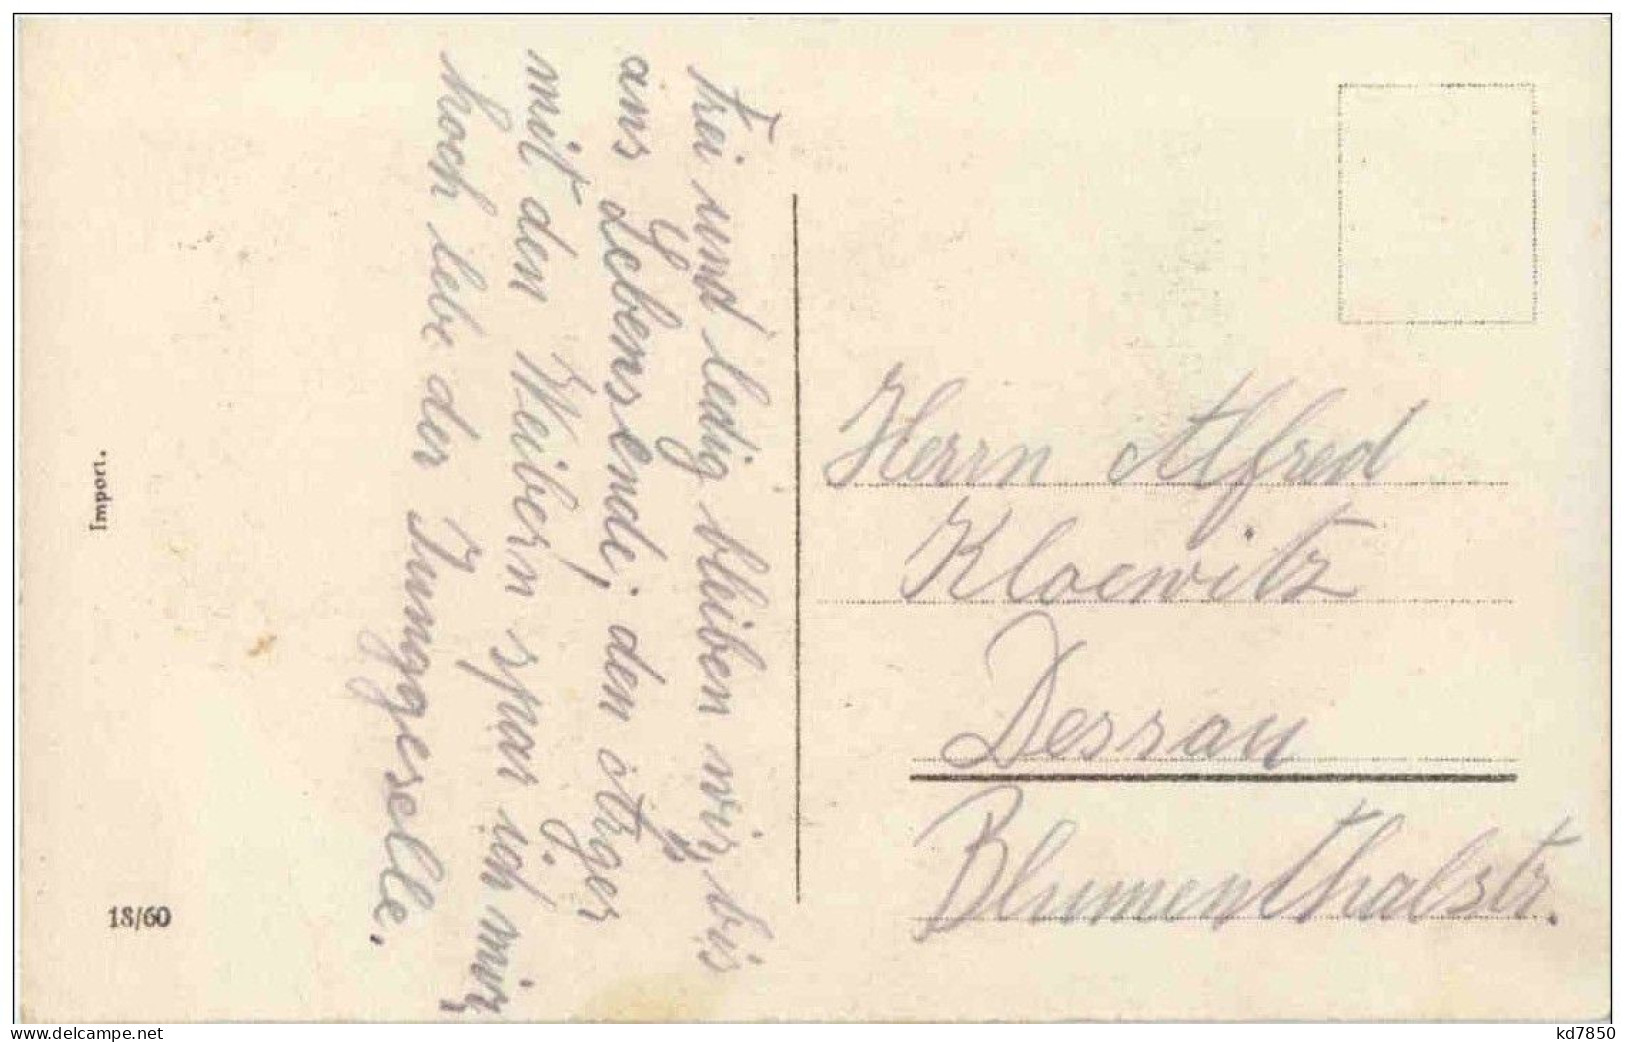 Frei und ledig bleiben wir, bis
ans Lebensende; den ärger
mit den Weibern spar ich mir,
hoch lebe der Junggeselle.
Herrn Alfred
Kloewitz
Dessau
Blumenthalstr.
Import.
18/60
delcampe.net
kd7850